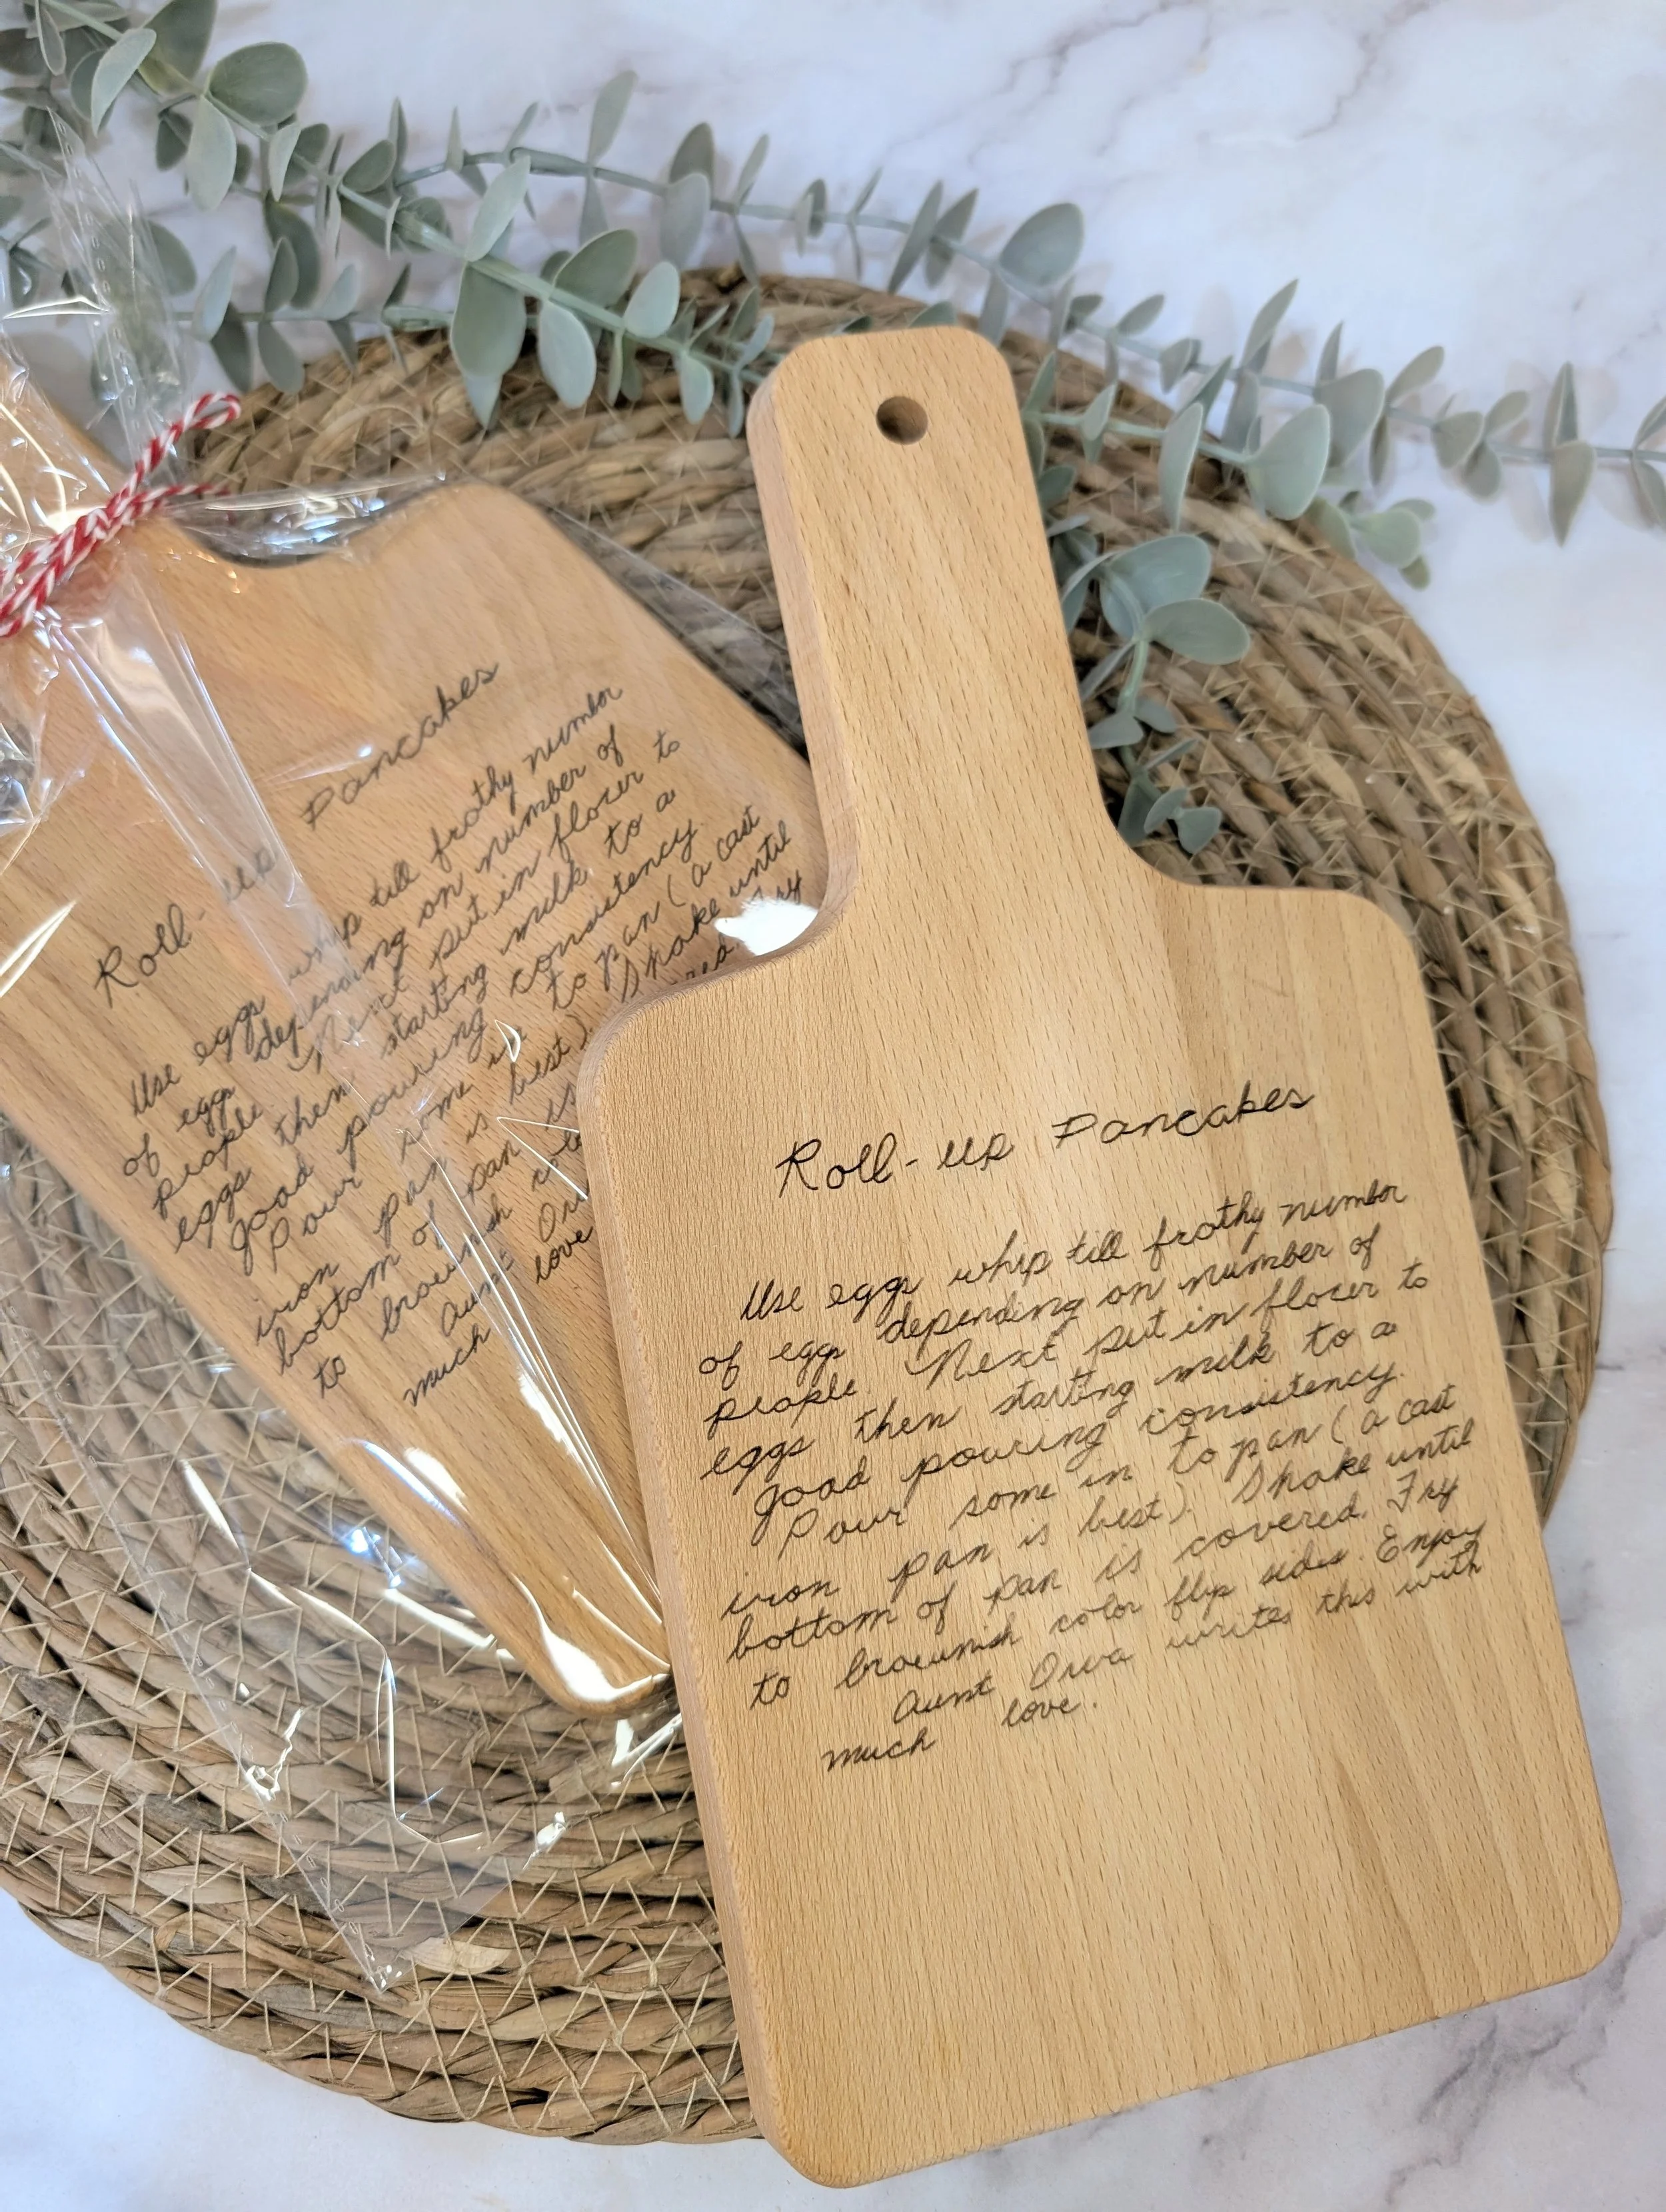 Roll-up Pancakes
Use eggs whip till frothy number
of eggs depending on number of
people. Next put in flour to
eggs then starting milk to a
good pouring consistency.
Pour some in to pan (a cast
iron pan is best). Shake until
bottom of pan is Fry
to brownish
Aunt
much love
Roll-up Pancakes
Use eggs whip till frothy number
of eggs depending on number of
people. Next put in flour to
eggs then starting milk to a
good pouring consistency.
Pour some in to pan (a cast
iron pan is best). Shake until
bottom of pan is covered. Fry
to brownish color flip sides. Enjoy
Aunt Orva writes this with
much love.